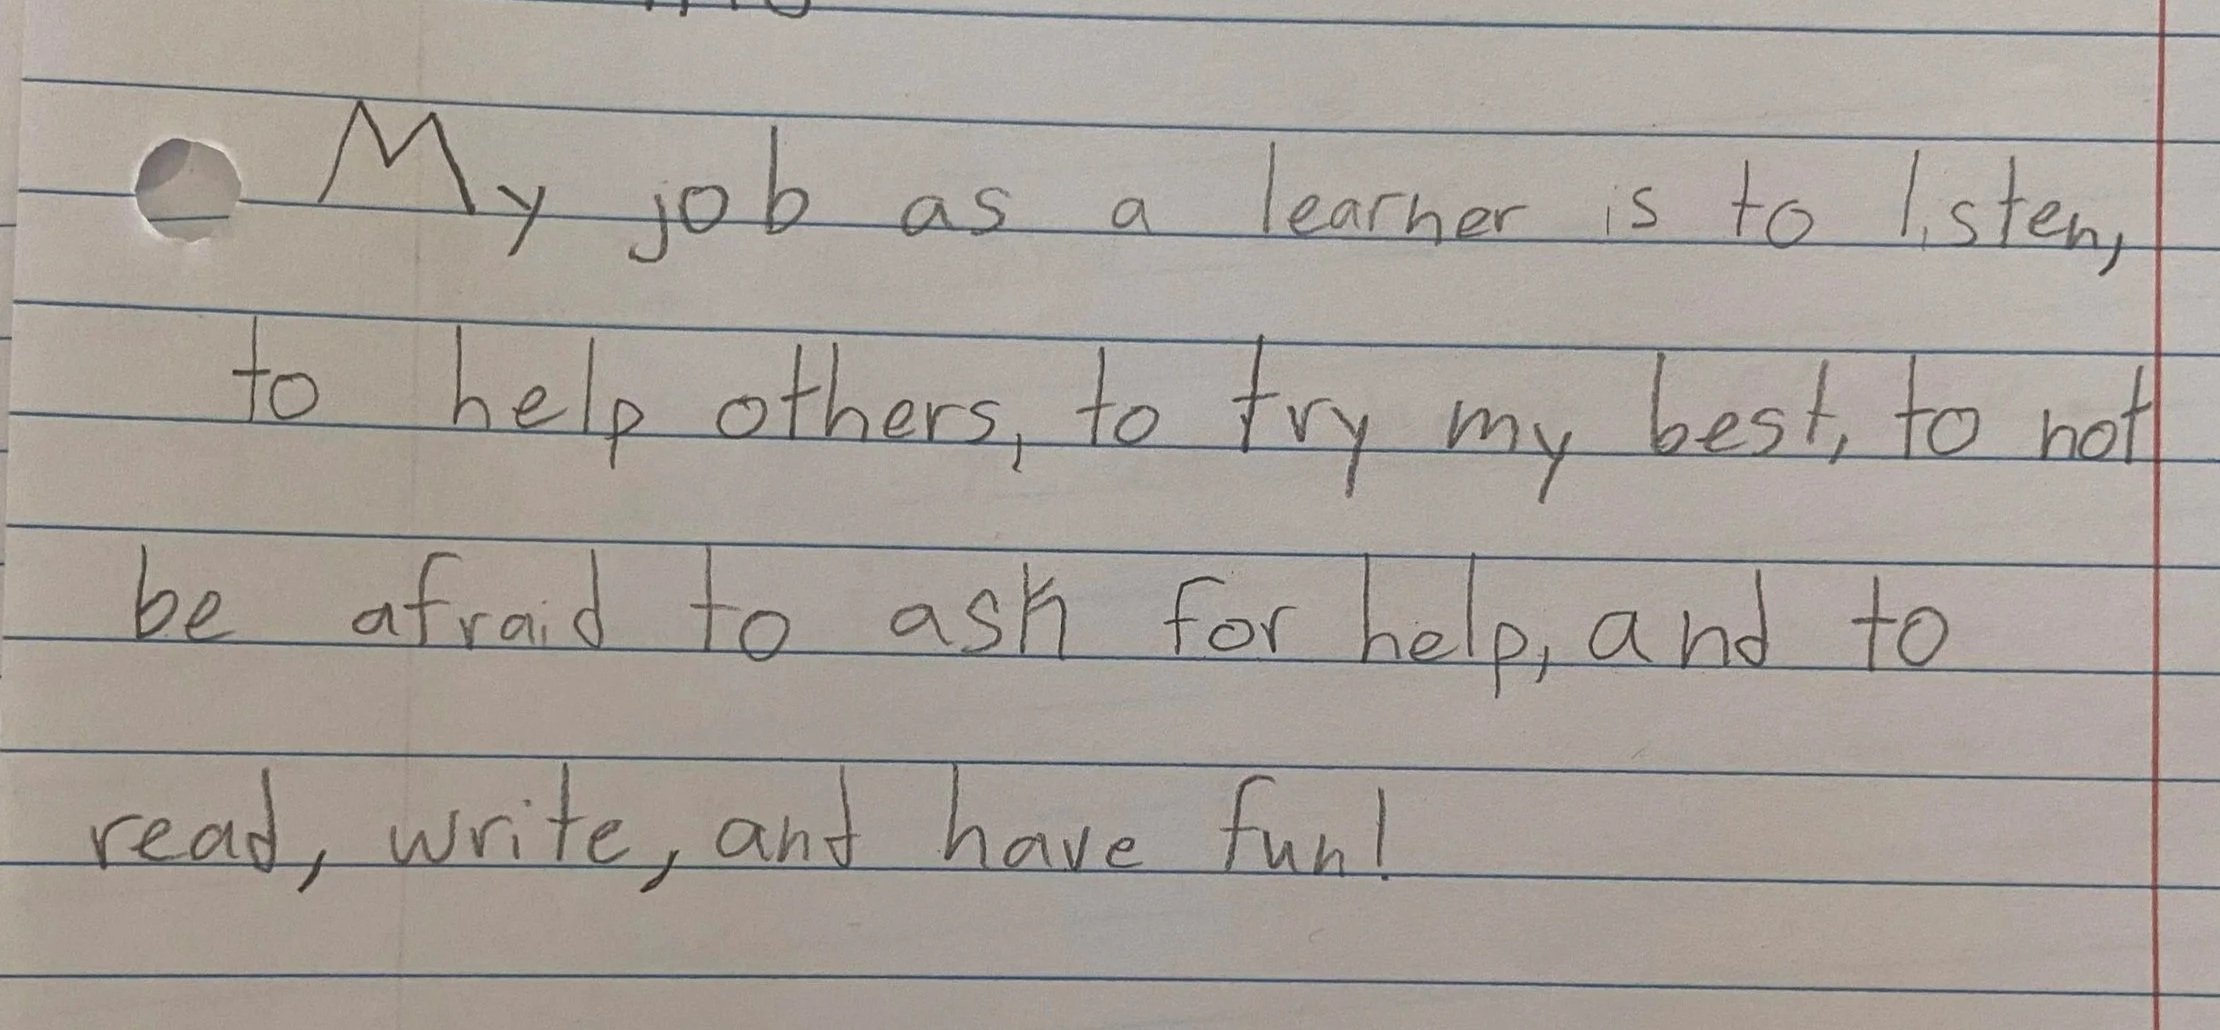 My job as a learner is to listen,
to help others, to try my best, to not
be afraid to ask for help, and to
read, write, and have fun!